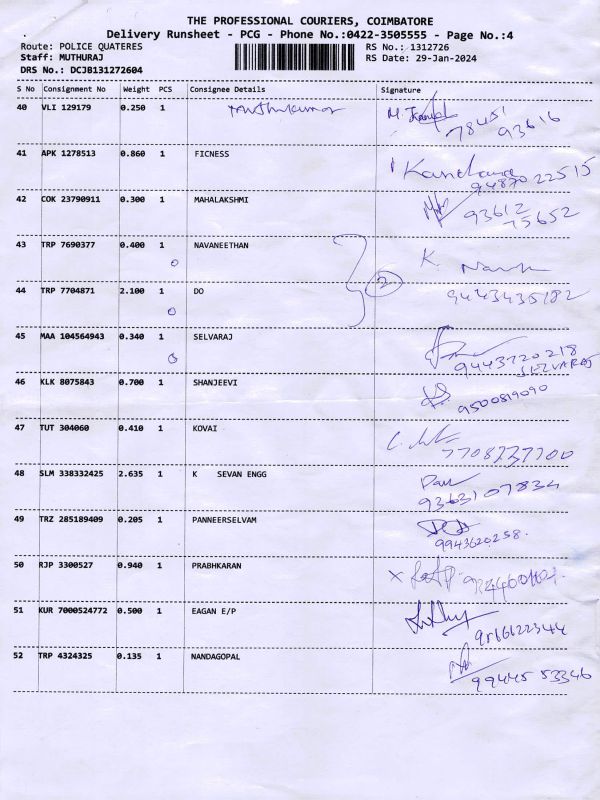 THE PROFESSIONAL COURIERS, COIMBATORE
Delivery Runsheet - PCG - Phone No.:0422-3505555 - Page No.:4
Route: POLICE QUATERES RS No.: 1312726
Staff: MUTHURAJ RS Date: 29-Jan-2024
DRS No.: DCJB131272604
S No Consignment No Weight PCS Consignee Details Signature
40 VLI 129179 0.250 1 Muthukumar M.
78451
93616
41 APK 1278513 0.860 1 FICNESS
94870 22515
42 COK 23790911 0.300 1 MAHALAKSHMI
93612
75652
43 TRP 7690377 0.400 1 NAVANEETHAN K.
0
2
44 TRP 7704871 2.100 1 DO 9443435182
0
45 MAA 104564943 0.340 1 SELVARAJ
9443720218
SELVARAJ
46 KLK 8075843 0.700 1 SHANJEEVI
9500819090
47 TUT 304060 0.410 1 KOVAI
7708737700
48 SLM 338332425 2.635 1 K SEVAN ENGG
9363107834
49 TRZ 285189409 0.205 1 PANNEERSELVAM
9943620258.
50 RJP 3300527 0.940 1 PRABHKARAN X
51 KUR 7000524772 0.500 1 EAGAN E/P
9566622344
52 TRP 4324325 0.135 1 NANDAGOPAL
99445 53346